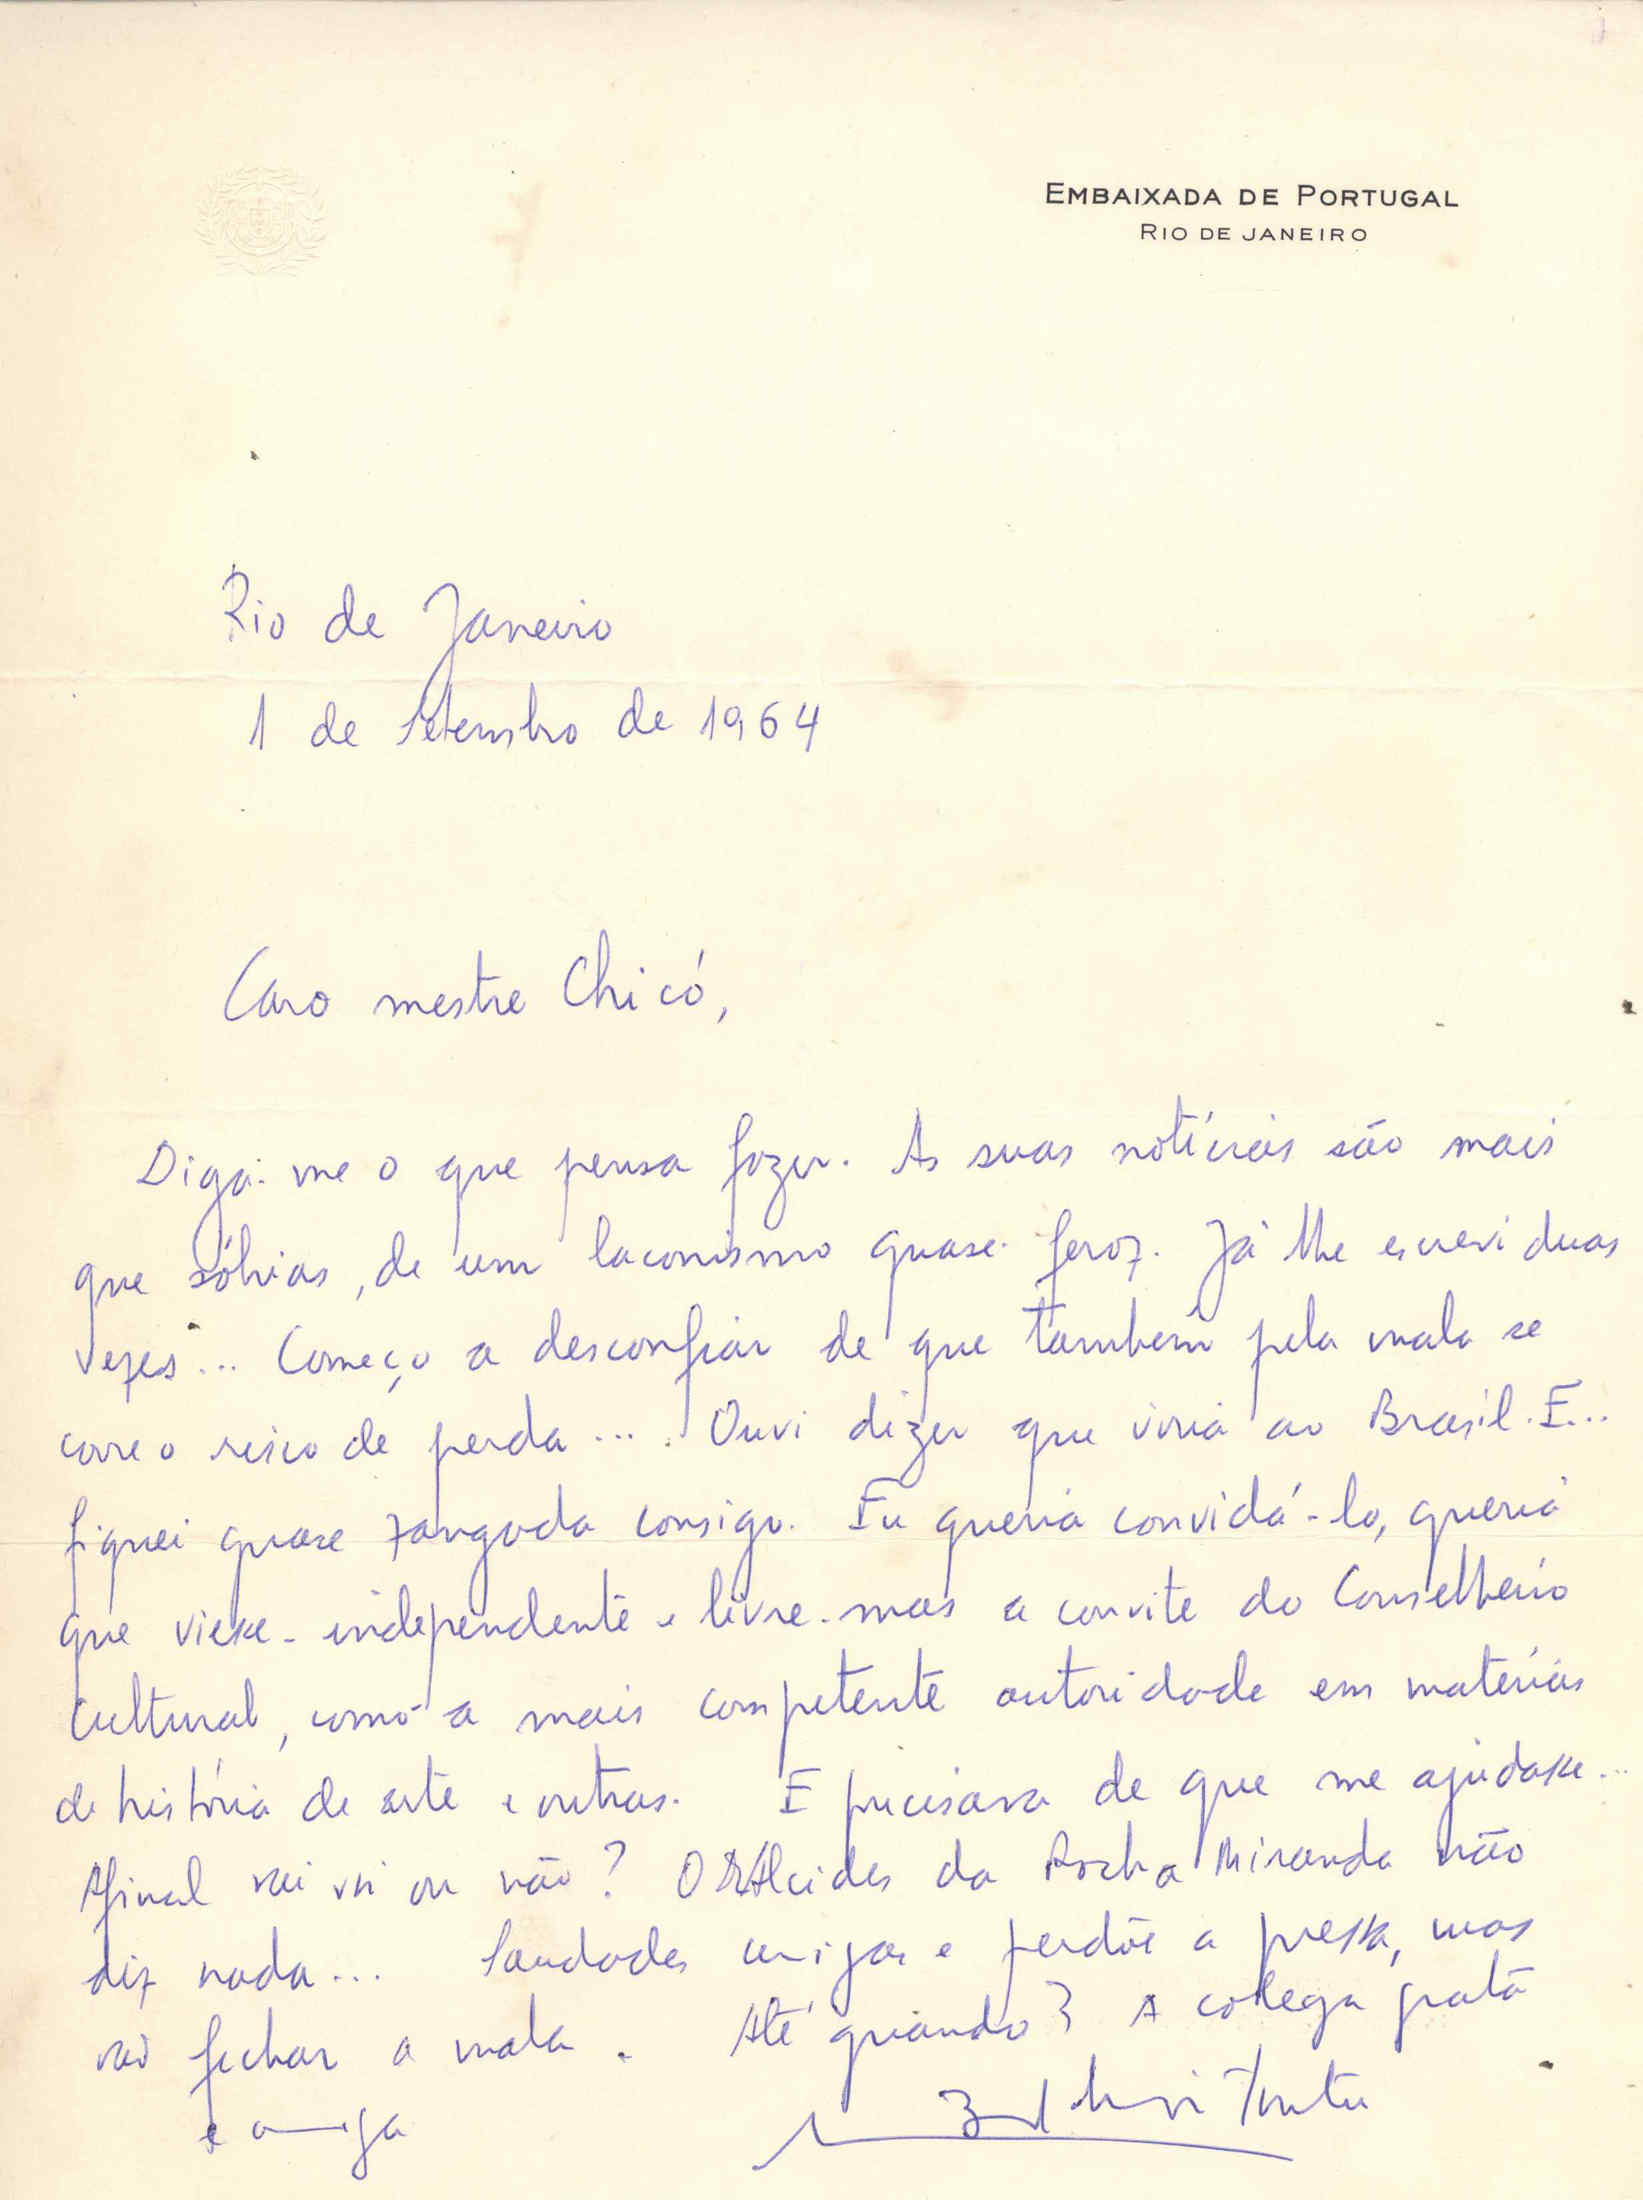 EMBAIXADA DE PORTUGAL
RIO DE JANEIRO
Rio de Janeiro
1 de Setembro de 1964
Caro mestre Chicó,
Diga-me o que pensa fazer. As suas notícias são mais
que sóbrias, de um laconismo quase feroz. Já lhe escrevi duas
vezes... Começo a desconfiar de que também pela mala se
corre o risco de perda.... Ouvi dizer que viria ao Brasil. E...
fiquei quase zangada consigo. Eu queria convidá-lo, queria
que viesse - independente e livre - mas a convite do Conselheiro
Cultural, como a mais competente autoridade em matérias
de história de arte e outras. E precisava de que me ajudasse...
Afinal vai vir ou não? O Alcides da Rocha Miranda não
diz nada... Saudades amigas e perdôe a pressa, mas
vai fechar a mala. Até quando? A colega grata
e amiga